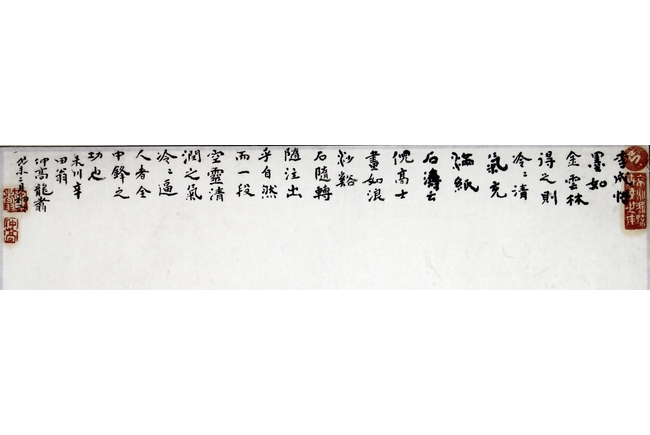 李成惜
墨如
金雲林
得之則
冷〻清
氣充
滿紙
石濤云
倪高士
畫如浪
沙谿
石隨轉
隨注出
乎自然
而一段
空靈清
潤之氣
冷〻逼
人者全
中鋒之
功也
禾川辛
田翁
仲高龍翥